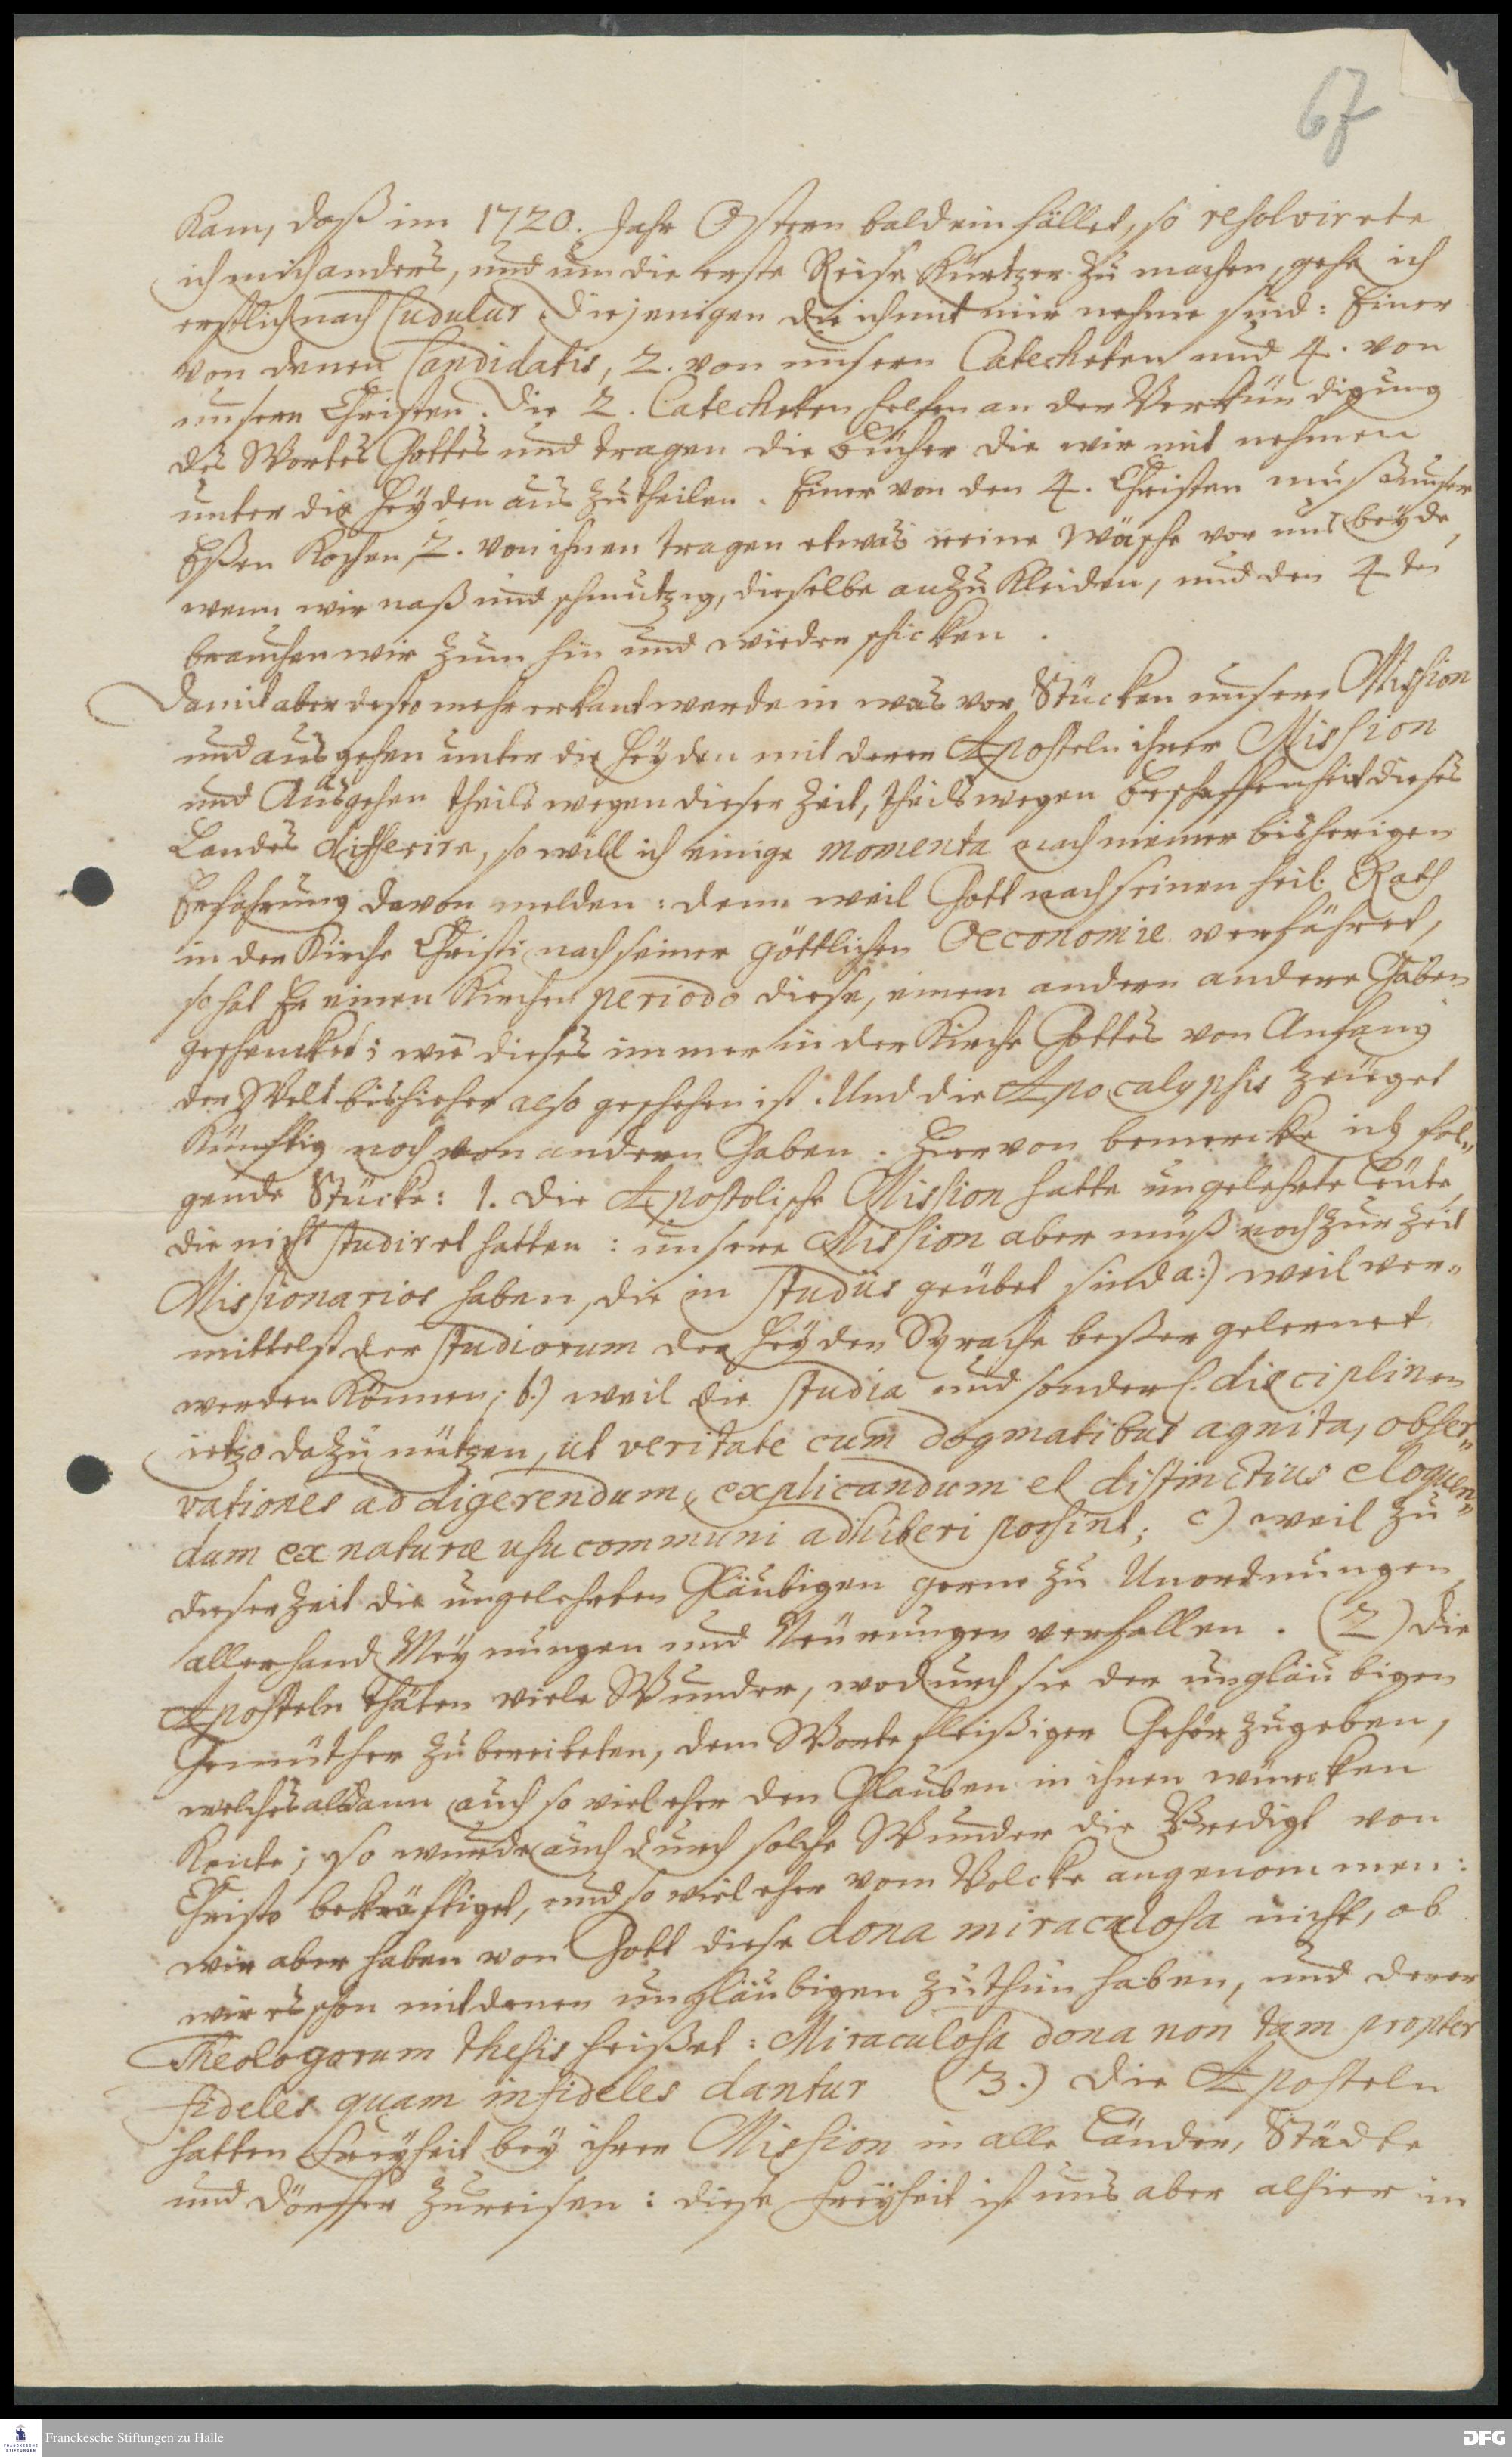 67
kam, daß im 1720. Jahr Ostern bald einfället, so resolvirete
ich mich anders, und um die erste Reise kürtzer zu machen, gehe ich
erstlich nach Cudulur. Diejenigen die ich mit mir nehme sind: Einer
von denen Candidatis, 2. von unsern Catecheten und 4. von
unsern Christen. Die 2. Catecheten helfen an der Verkündigung
des Wortes Gottes und tragen die Bücher die wir mit nehmen
unter die Heyden aus zutheilen. Einer von den 4. Christen muß unser
Eßen kochen, 2. von ihnen tragen etwas reine Wäsche vor uns beyde,
wenn wir naß und schmutzig, dieselbe anzukleiden, und den 4ten
brauchen wir zum hin und wieder schicken.
Damit aber desto mehr erkant werde in was vor Stücken unsere Mission
und ausgehen unter die Heyden mit derer Aposteln ihrer Mission
und Ausgehen theils wegen dieser Zeit, theils wegen Beschaffenheit dieses
Landes differire, so will ich einige momenta nach meiner bisherigen
Erfahrung davon melden: denn weil Gott nach seinen heil. Rath
in der Kirche Christi nach seiner göttlichen Oeconomie verfähret,
so hat Er einen Kirchen periodo diese, einem andern andere Gaben
geschencket; wie dieses immer in der Kirche Gottes von Anfang
der Welt bishieher also geschehen ist. Und die Apocalypsis zeuget
künfftig noch von andern Gaben. Hiervon bemercke ich fol„
gende Stücke: 1. Die Apostolische Mission hatte ungelehrte Leute,
die nicht studiret hatten: unsere Mission aber muß noch zur Zeit
Missionarios haben, die in studiis geübet sind a:) weil ver„
mittelst der studiorum der Heyden Sprache beßer gelernet
werden können; b.) weil die studia und sonderl. disciplinen
ietzo dazu nützen, ut veritate cum dogmatibus agnita, obser„
vationes ad digerendum, explicandum et distinctius eloquen„
dum ex naturæ usu communi adhiberi possint; c) weil zu
dieser Zeit die ungelehrten Gläubigen gerne zu Unordnungen,
allerhand Meynungen und Neurungen verfallen. (2) Die
Aposteln thäten viele Wunder, wodurch sie der ungläubigen
Gemüther zubereiteten, dem Worte fleißiger Gehör zugeben,
welches alsdann auch so viel eher den Glauben in ihnen würcken
konte; so wurde auch durch solche Wunder die Predigt von
Christo bekräfftiget, und so viel eher vom Volcke angenommen:
wir aber haben von Gott diese dona miraculosa nicht, ob
wir es schon mit denen ungläubigen zuthun haben, und derer
Theologorum thesis heißet: Miraculosa dona non tam propter
fideles quam infideles dantur (3.) Die Aposteln
hatten Freyheit bey ihrer Mission in alle Länder, Städte
und Dörffer zureisen: diese Freyheit ist uns aber alhier in
Franckesche Stiftungen zu Halle
DFG